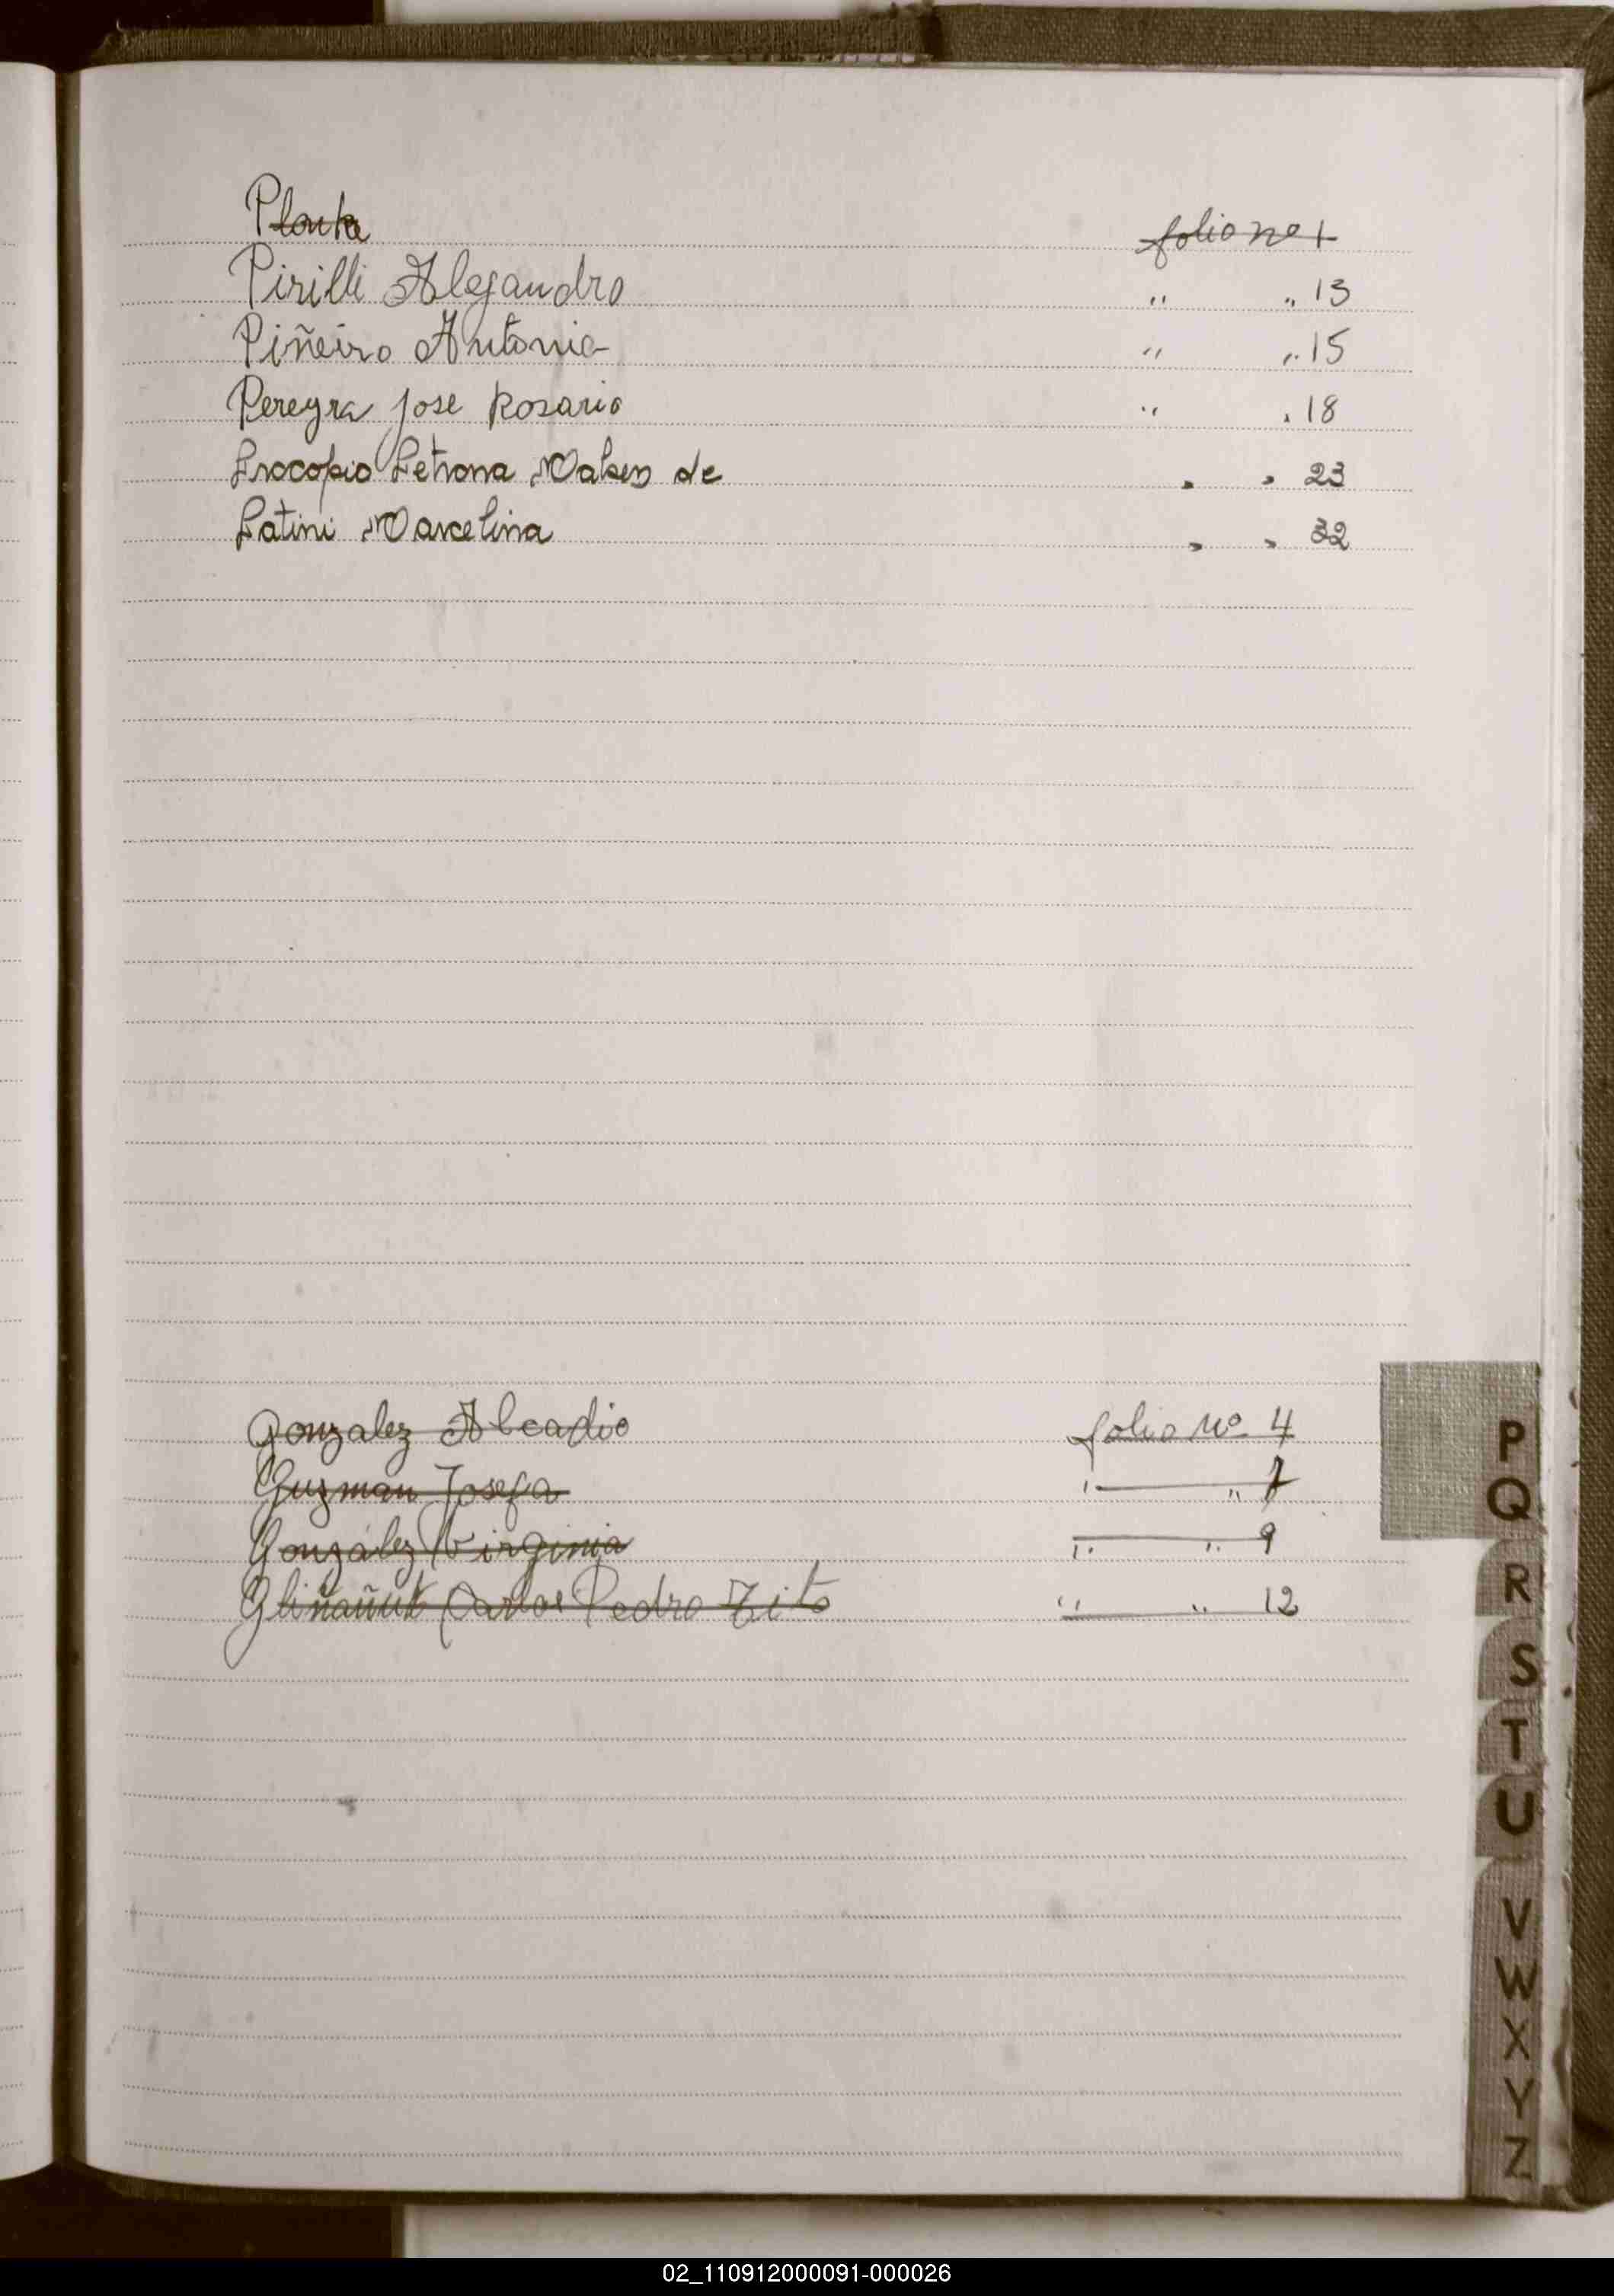 Planta folio nº 1
Pirilli Alejandro " " 13
Piñeiro Antonia " " 15
Pereyra Jose Rosario " " 18
Procopio Petrona de " " 23
Patini Marcelina " " 32
Gonzalez folio Nº 4
Guzman Josefa " " 7
Gonzalez Virginia " " 9
Carlos Pedro Tito " " 12
P
Q
R
S
T
U
V
W
X
Y
Z
02_110912000091-000026